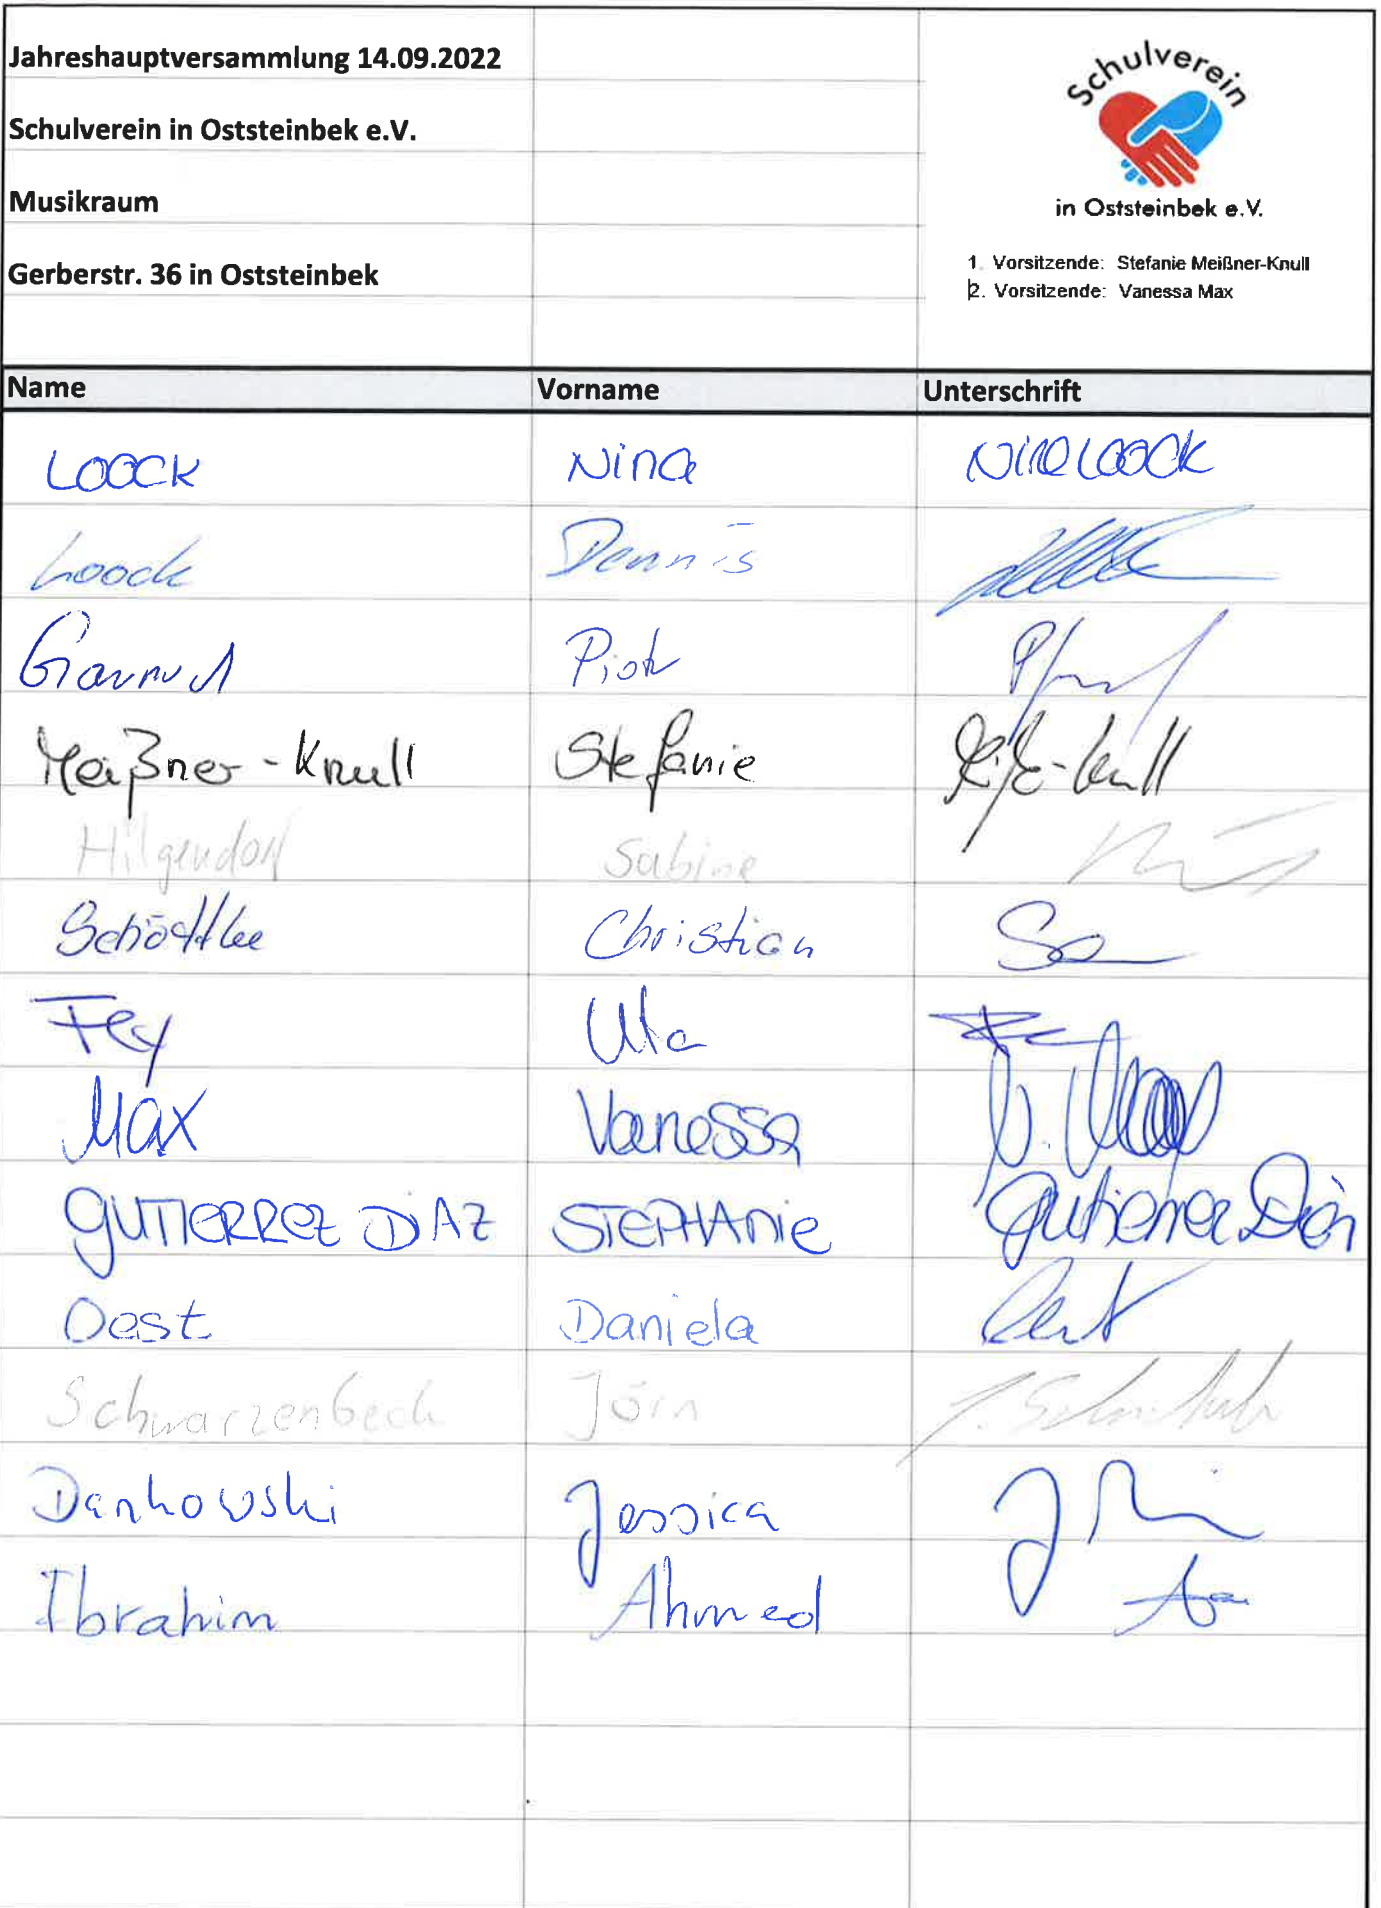 Jahreshauptversammlung 14.09.2022
Schulverein in Oststeinbek e.V.
Musikraum
Gerberstr. 36 in Oststeinbek
Schulverein
in Oststeinbek e.V.
1. Vorsitzende: Stefanie Meißner-Knull
2. Vorsitzende: Vanessa Max
Name Vorname Unterschrift
LOOCK Nina Nina Loock
Loock Dennis
Piotr
Meißner-Knull Stefanie
Hilgendorf Sabine
Schöttke Christian
Fey Uta
Max Vanessa V. Max
GUTIERREZ DIAZ STEPHANIE Gutierrez Diaz
Oest Daniela Oest
Schwarzenbeck Jörn
Dankowski Jessica
Ibrahim Ahmed